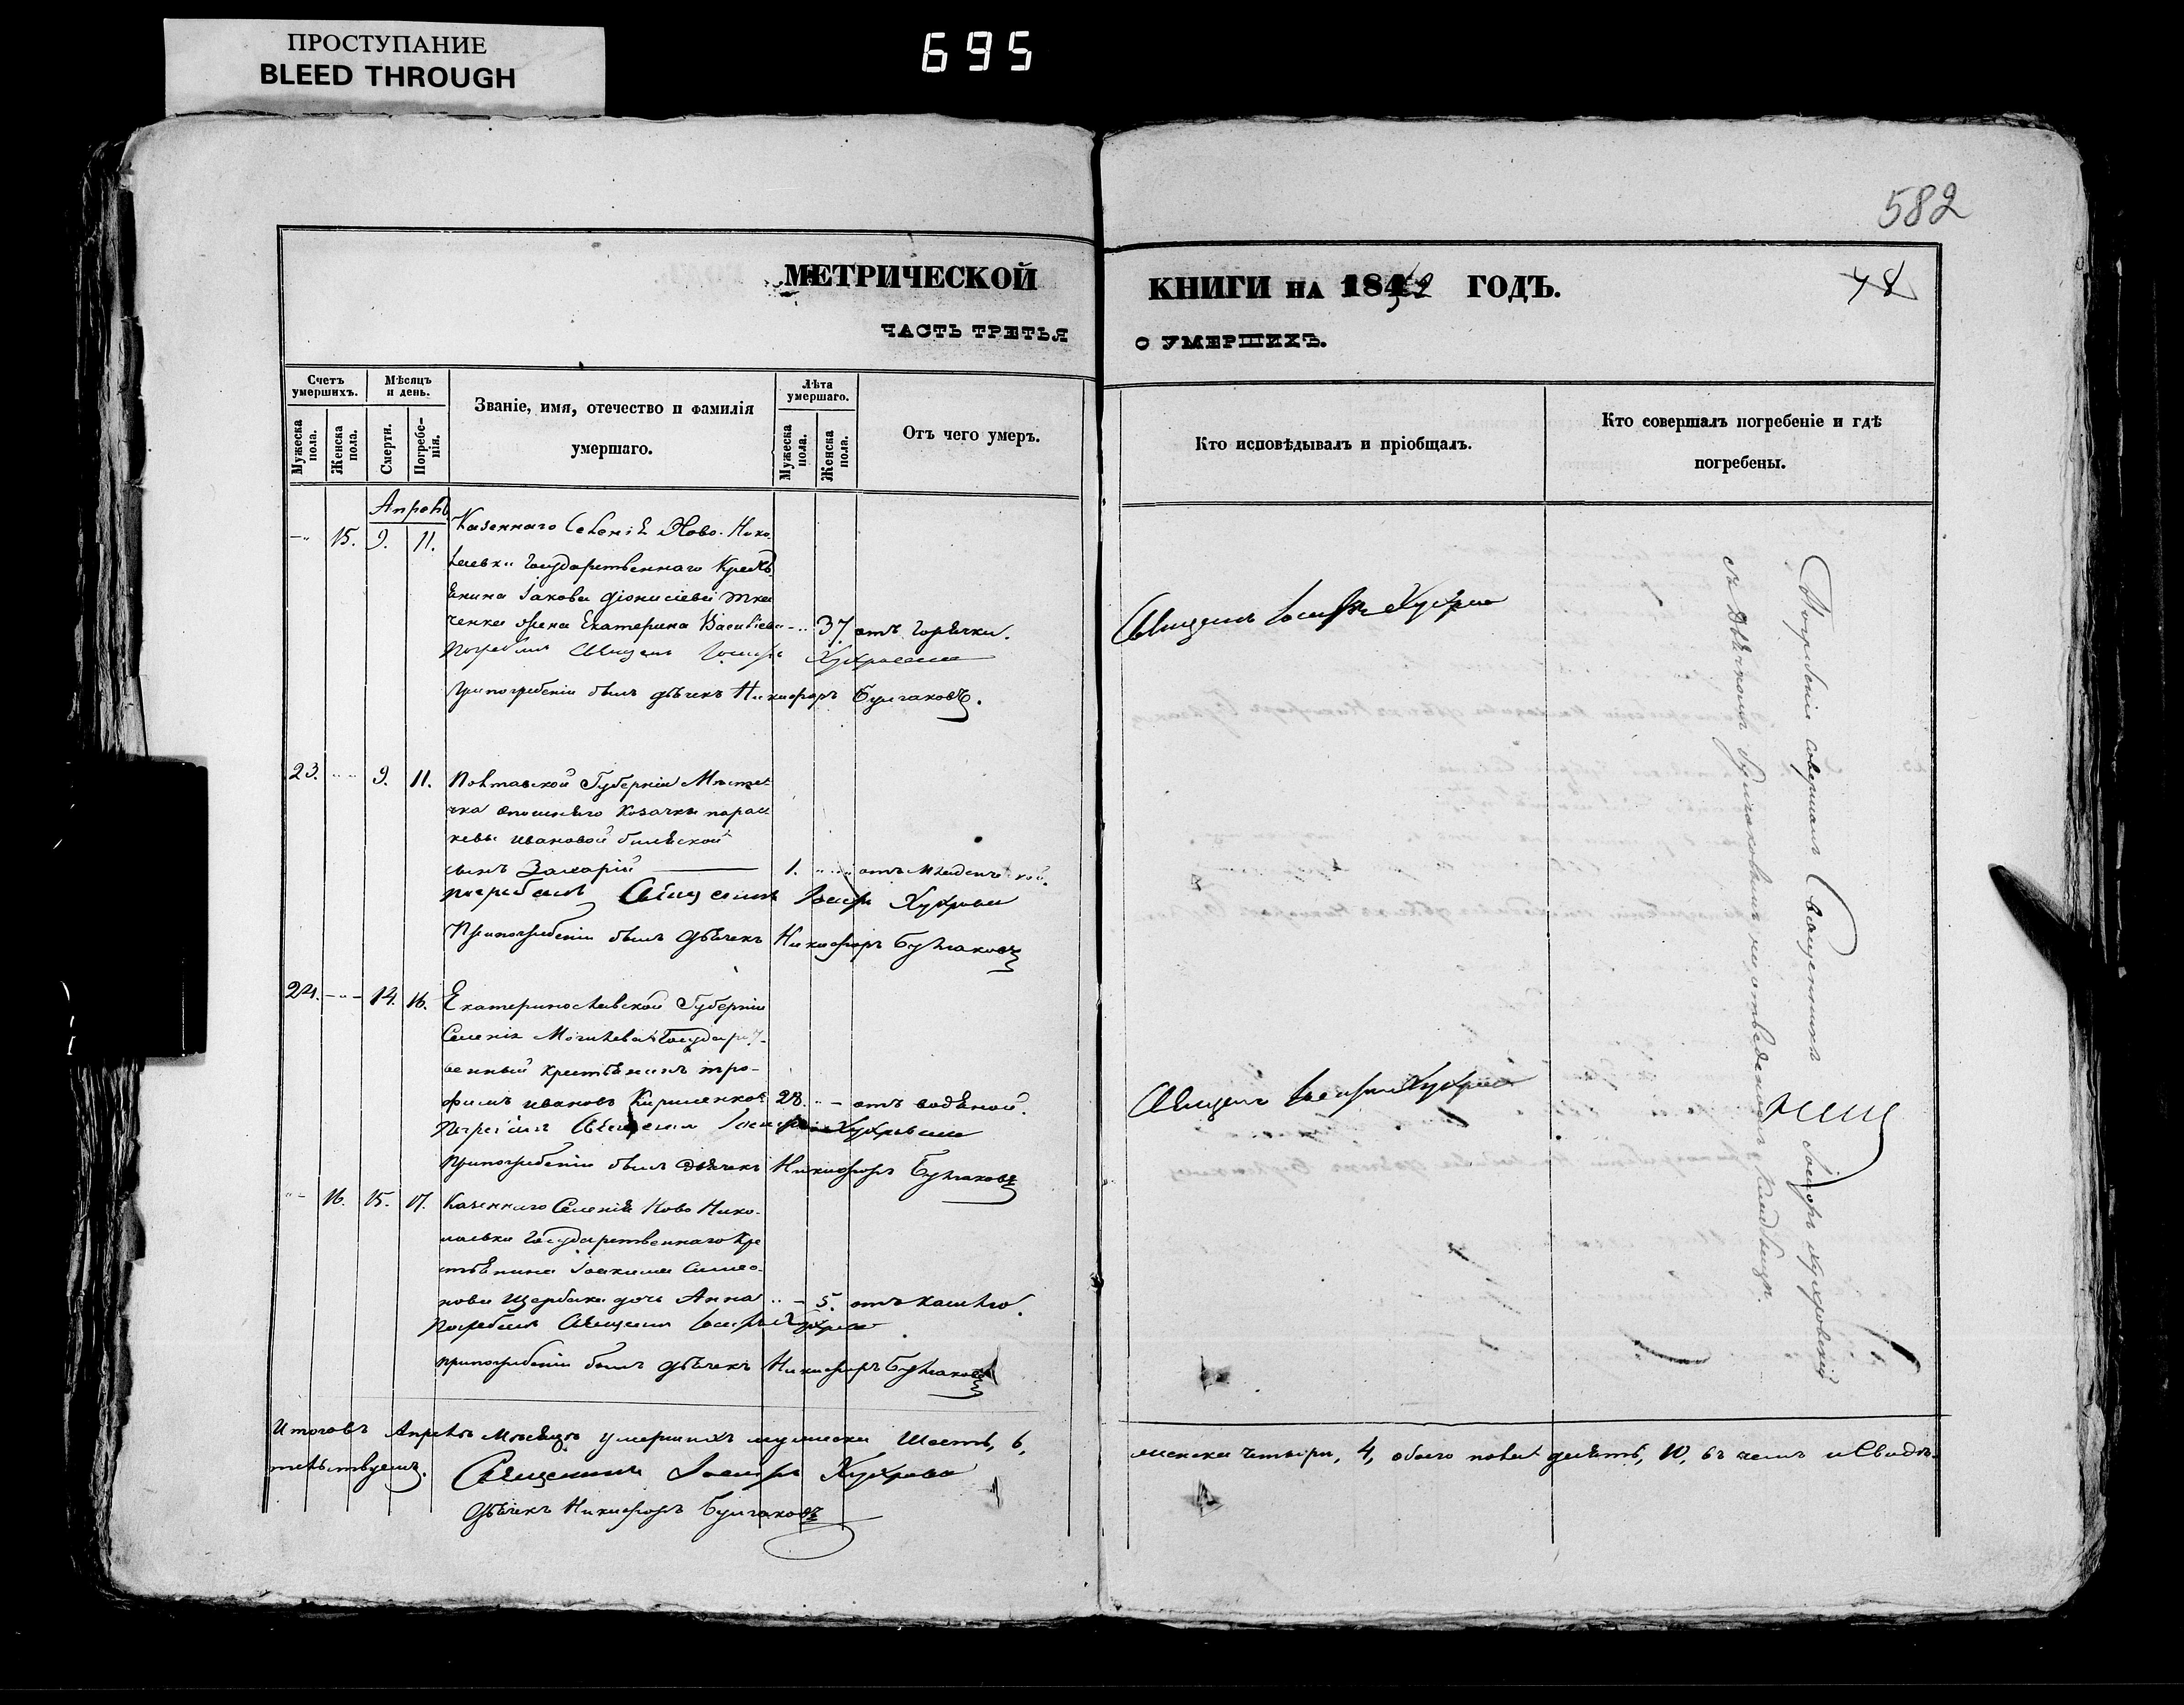 ПРОСТУПАНИЕ
BLEED THROUGH
695
582
МЕТРИЧЕСКОЙ КНИГИ НА 1852 ГОДЪ.
78
ЧАСТЬ ТРЕТЬЯ О УМЕРШИХЪ.
Счетъ умершихъ.
Мужеска пола.
Женска пола.
Мѣсяцъ и день.
Смерти.
Погребенія.
Званіе, имя, отечество и фамилія умершаго.
Лѣта умершаго.
Мужеска пола.
Женска пола.
Отъ чего умеръ.
Кто исповѣдывалъ и пріобщалъ.
Кто совершалъ погребеніе и гдѣ погребены.
Апрель
15. 9. 11. Казеннаго Селенія Ново-Нико
лаевки Государственнаго Кресть
янина Іакова Діонисіева Тка
ченка жена Екатерина Васильева 37 отъ горячки.
Погребалъ Священ Іосифъ
При погребеніи былъ дьячекъ Никифоръ Булгаковъ.
Священ Іосифъ
23. 9. 11. Полтавской Губерніи Мѣсте
чка Опошняго Козачки Парас
кевы Ивановой
сынъ Захарій 1. отъ младенческой.
погребалъ Священникъ Іосифъ
При погребеніи былъ дьячекъ Никифоръ Булгаковъ
24. 14. 16. Екатеринославской Губерніи
Селенія Могилева Государст
венный крестьянинъ Тро-
фимъ Ивановъ Кириленко 28. отъ водяной.
Погребалъ Священ Іосифъ
При погребеніи былъ дьячекъ Никифоръ Булгаковъ
Священ Іосифъ
16. 15. 17. Казеннаго Селенія Ново Нико-
лаевки Государственнаго Кре
стьянина Іоакима Симео-
нова Щербака дочь Анна 5. отъ кашлю.
Погребалъ Священ Іосифъ
при погребеніи былъ дьячекъ Никифоръ Булгаковъ
Погребеніе совершалъ Священникъ Іосифъ
съ дьячкомъ Булгаковымъ на отведенномъ кладбищѣ.
Итого въ Апрелѣ Мѣсяцѣ умершихъ мужеска Шесть, 6, женска четыри, 4, обоего пола десять, 10, въ чемъ и Свидѣ-
тельствуемъ. Священникъ Іосифъ
Дьячекъ Никифоръ Булгаковъ